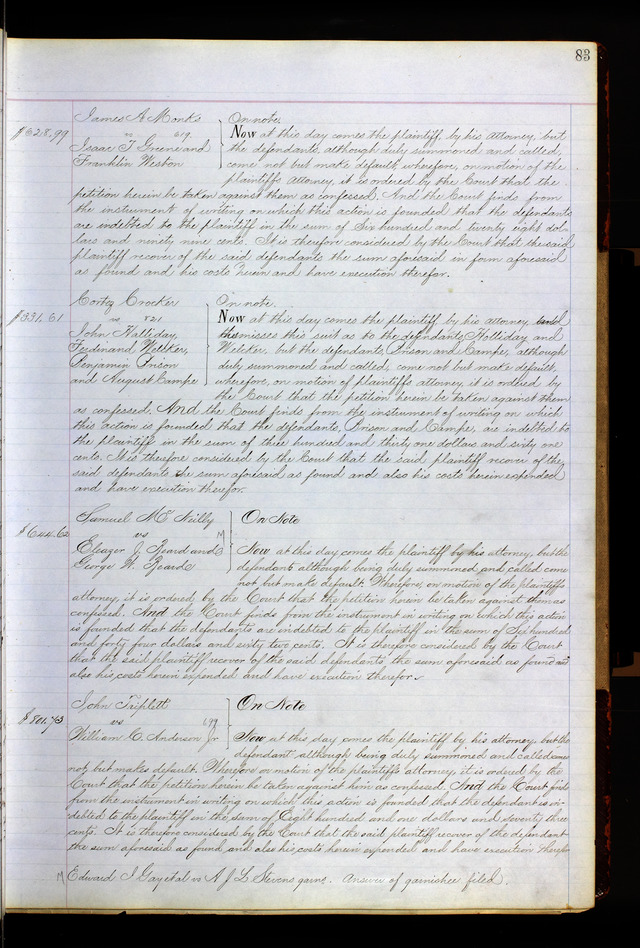 83
James A Monks On note.
$628.99 vs 619. Now at this day comes the plaintiff by his attorney, but
Isaac T Greene and the defendants, although duly summoned and called,
Franklin Weston come not but make default, wherefore, on motion of the
plaintiffs attorney, it is ordered by the Court that the
petition herein be taken against them as confessed. And the Court finds from
the instrument of writing on which this action is founded that the defendants
are indebted to the plaintiff in the sum of Six hundred and twenty eight dol-
lars and ninety nine cents. It is therefore considered by the Court that the said
plaintiff recover of the said defendants the sum aforesaid in form aforesaid
as found and his costs herein and have execution therefor.
Crocker On note.
$331.61 vs 721 Now at this day comes the plaintiff by his attorney and
John Halliday, dismisses this suit as to the defendants, Holliday and
Ferdinand Welker, Welcker, but the defendants, Prison and Campe, although
Benjamin Prison duly summoned and called, come not but make default,
and August Campe wherefore, on motion of plaintiffs attorney, it is ordered by
the Court that the petition herein be taken against them
as confessed. And the Court finds from the instrument of writing on which
this action is founded that the defendants, Prison and Campe, are indebted to
the plaintiff in the sum of three hundred and thirty one dollars and sixty one
cents. It is therefore considered by the Court that the said plaintiff recover of the
said defendants the sum aforesaid as found and also his costs herein expended
and have execution therefor.
Samuel Mc Nulty On Note
$644.62 vs M
Eleazer J. Beard and Now at this day comes the plaintiff by his attorney, but the
George W. Beard defendants although being duly summoned and called come
not but make default. Wherefore, on motion of the plaintiffs
attorney, it is ordered by the Court that the petition herein be taken against them as
confessed. And the Court finds from the instrument in writing on which this action
is founded that the defendants are indebted to the plaintiff in the sum of Six hundred
and forty four dollars and sixty two cents. It is therefore considered by the Court
that the said plaintiff recover of the said defendants the sum aforesaid as found and
also his costs herein expended and have execution therefor.
John Triplett On Note
$801.73 vs 199
William C. Anderson Jr Now at this day comes the plaintiff by his attorney, but the
defendant although being duly summoned and called comes
not, but makes default. Wherefore on motion of the plaintiffs attorney, it is ordered by the
Court that the petition herein be taken against him as confessed. And the Court finds
from the instrument in writing on which this action is founded that the defendant is in-
debted to the plaintiff in the sum of Eight hundred and one dollars and seventy three
cents. It is therefore considered by the Court that the said plaintiff recover of the defendant
the sum aforesaid as found and also his costs herein expended and have execution therefor
M Edward I Gay et al vs A J L Stevens garns. Answer of garnishee filed.